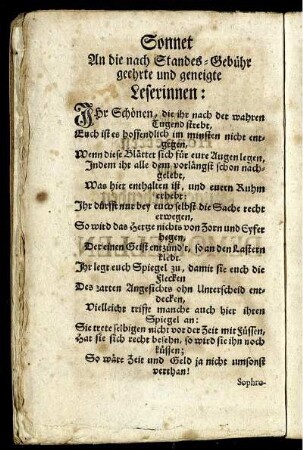 Sonnet
An die nach Standes-Gebühr
geehrte und geneigte
Leserinnen:
IHr Schönen, die ihr nach der wahren
Tugend strebt,
Euch ist es hoffendlich im minsten nicht ent-
gegen,
Wenn diese Blätter sich für eure Augen legen,
Indem ihr alle dem vorlängst schon nach-
gelebt,
Was hier enthalten ist, und euern Ruhm
erhebt;
Ihr dürfft nur bey euch selbst die Sache recht
erwegen,
So wird das Hertze nichts von Zorn und Eyfer
hegen,
Der einen Geist entzünd't, so an den Lastern
klebt.
Ihr legt euch Spiegel zu, damit sie euch die
Flecken
Des zarten Angesichts ohn Unterscheid ent-
decken,
Vielleicht trifft manche auch hier ihren
Spiegel an:
Sie trete selbigen nicht vor der Zeit mit Füssen,
Hat sie sich recht besehn, so wird sie ihn noch
küssen;
So wäre Zeit und Geld ja nicht umsonst
verthan!
Sophro-